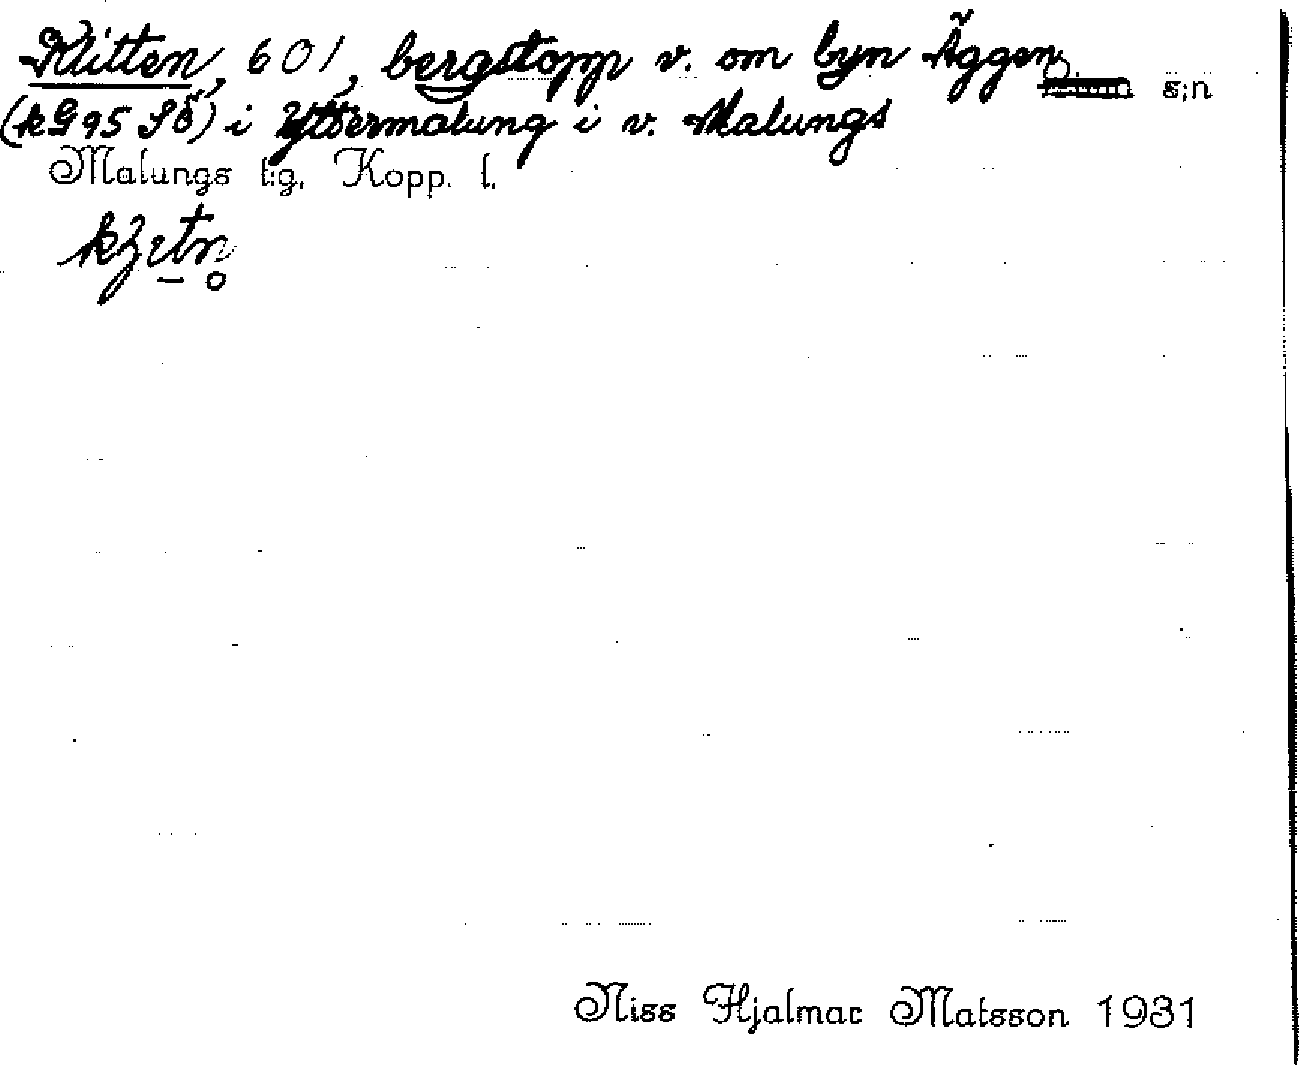 Klitten, 601, bergstopp v. om byn Äggen s:n
(kG95 Sö) i Yttermalung i v. Malungs
Malungs t:g. Kopp. l.
Niss Hjalmar Matsson 1931